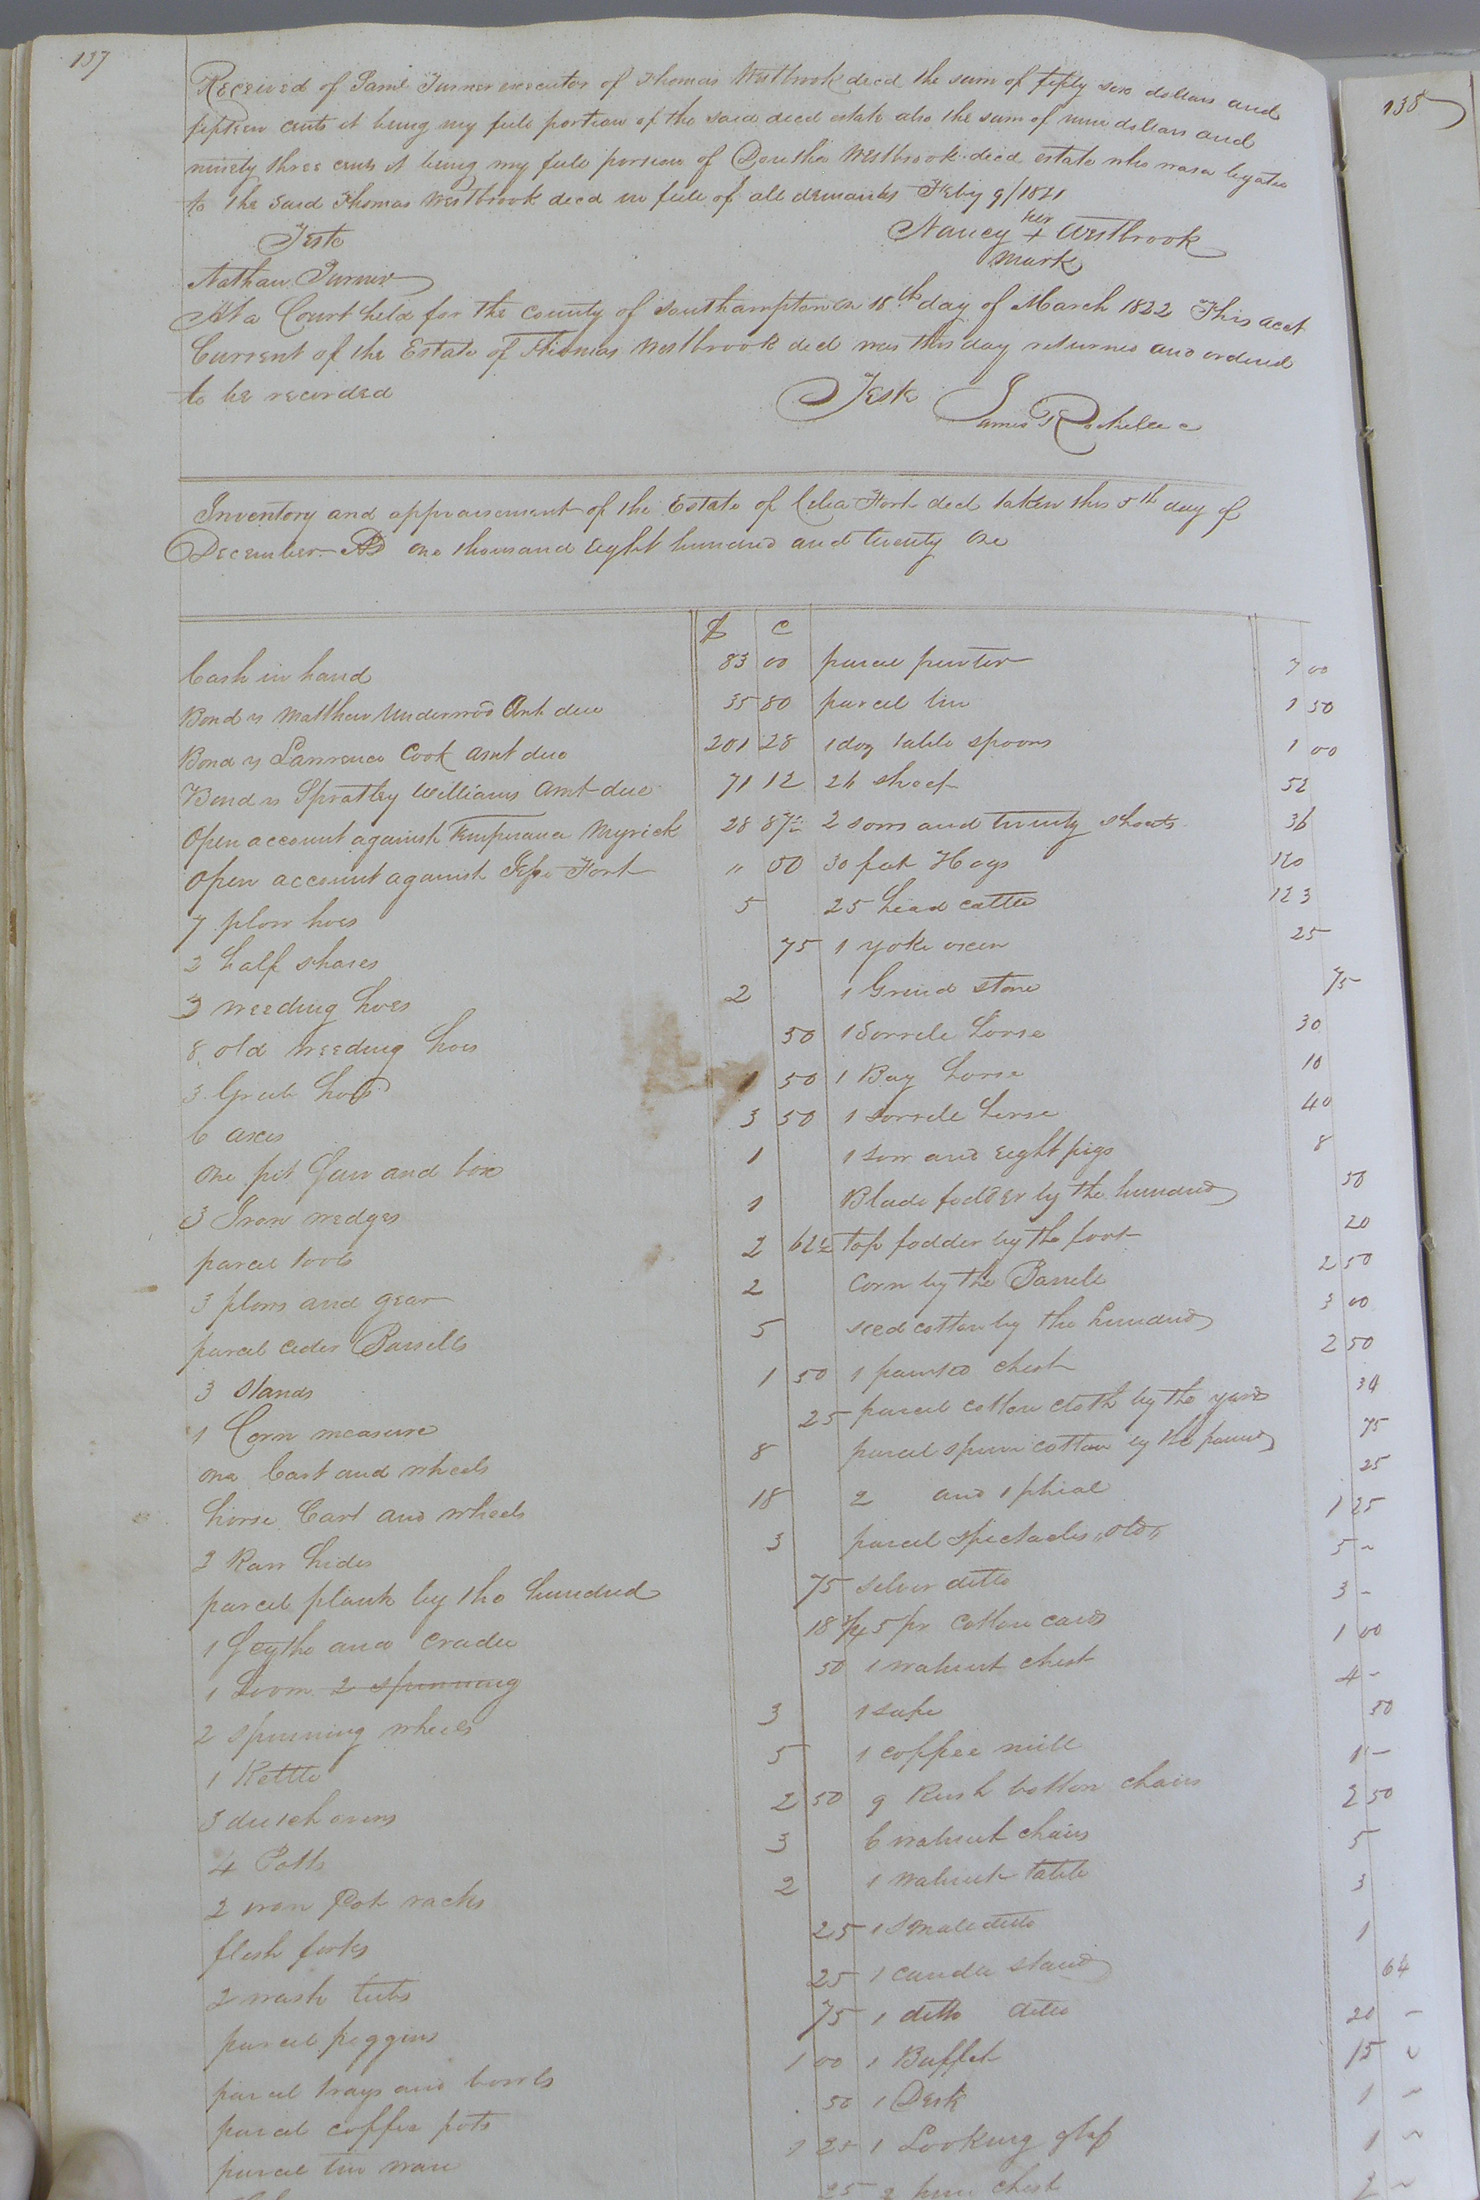 137
138
Received of Saml Turner executor of Thomas Westbrook decd the sum of fifty six dollars and
fifteen cents it being my full portion of the said decd estate also the sum of nine dollars and
ninety three cents it being my full portion of Westbrook decd estate who was a legatee
to the said Thomas Westbrook decd in full of all demands Feby 9/1821
Teste Nancy her + Westbrook
mark
Nathan Turner
At a Court held for the County of Southampton on 18th day of March 1822 This acct
Current of the Estate of Thomas Westbrook decd was this day returned and ordered
to be recorded
Teste James Rochelle c
Inventory and appraisement of the Estate of Celia Fort decd taken this 5th day of
December AD one thousand Eight hundred and twenty one
$ c
Cash in hand 83 00 parcel pewter 7 00
Bond vs Matthew Underwood Amt due 35 80 parcel tin 1 50
Bond vs Lawrence Cook amt due 201 28 1 doz table spoons 1 00
Bond vs Spratley Williams Amt due 71 12 26 sheep 52
Open account against Temperana Myrick 28 87½ 2 sows and twenty shoats 36
Open account against Jesse Fort " 00 30 fat Hogs 120
7 plow hoes 5 25 head cattle 123
2 half shares 75 1 yoke oxen 25
3 weeding hoes 2 1 Grind stone 75
8 old weeding hoes 50 1 Sorrele horse 30
3 Grub hoes 1 50 1 Bay horse 10
6 axes 3 50 1 sorrele horse 40
One pit Saw and box 1 1 sow and eight pigs 8
3 Iron wedges 1 Blade fodder by the hundred 50
parcel tools 2 62½ top fodder by the foot 20
3 plows and gear 2 Corn by the Barrele 2 50
parcel cider Barrells 5 seed cotton by the hundred 3 00
3 stands 1 50 1 painted chest 2 50
1 Corn measure 25 parcel cotton cloth by the yard 34
one Cart and wheels 8 parcel spun cotton by the pound 75
horse Cart and wheels 18 2 and 1 phial 25
3 Raw hides 3 parcel spectacles "old" 1 25
parcel plank by the hundred 75 silver ditto 5 ~
1 Scythe and Cradle 18¾ 5 pr Cotton cards 3 -
1 Loom 2 spinning 50 1 walnut chest 1 00
2 spinning wheels 3 1 safe 4 -
1 Kettle 5 1 coffee mill 50
3 dutch ovens 2 50 9 Rush bottom chairs 1 -
4 Potts 3 6 walnut chairs 2 50
2 iron Pot racks 2 1 walnut table 5
flesh forks 25 1 smale ditto 3
2 wash tubs 25 1 candle stand 1
parcel piggins 75 1 ditto ditto 64
parcel trays and bowls 1 00 1 Buffet 20 -
parcel coffee pots 50 1 Desk 15 ~
parcel tin ware 25 1 Looking glass 1 ~
25 2 chest 1 ~